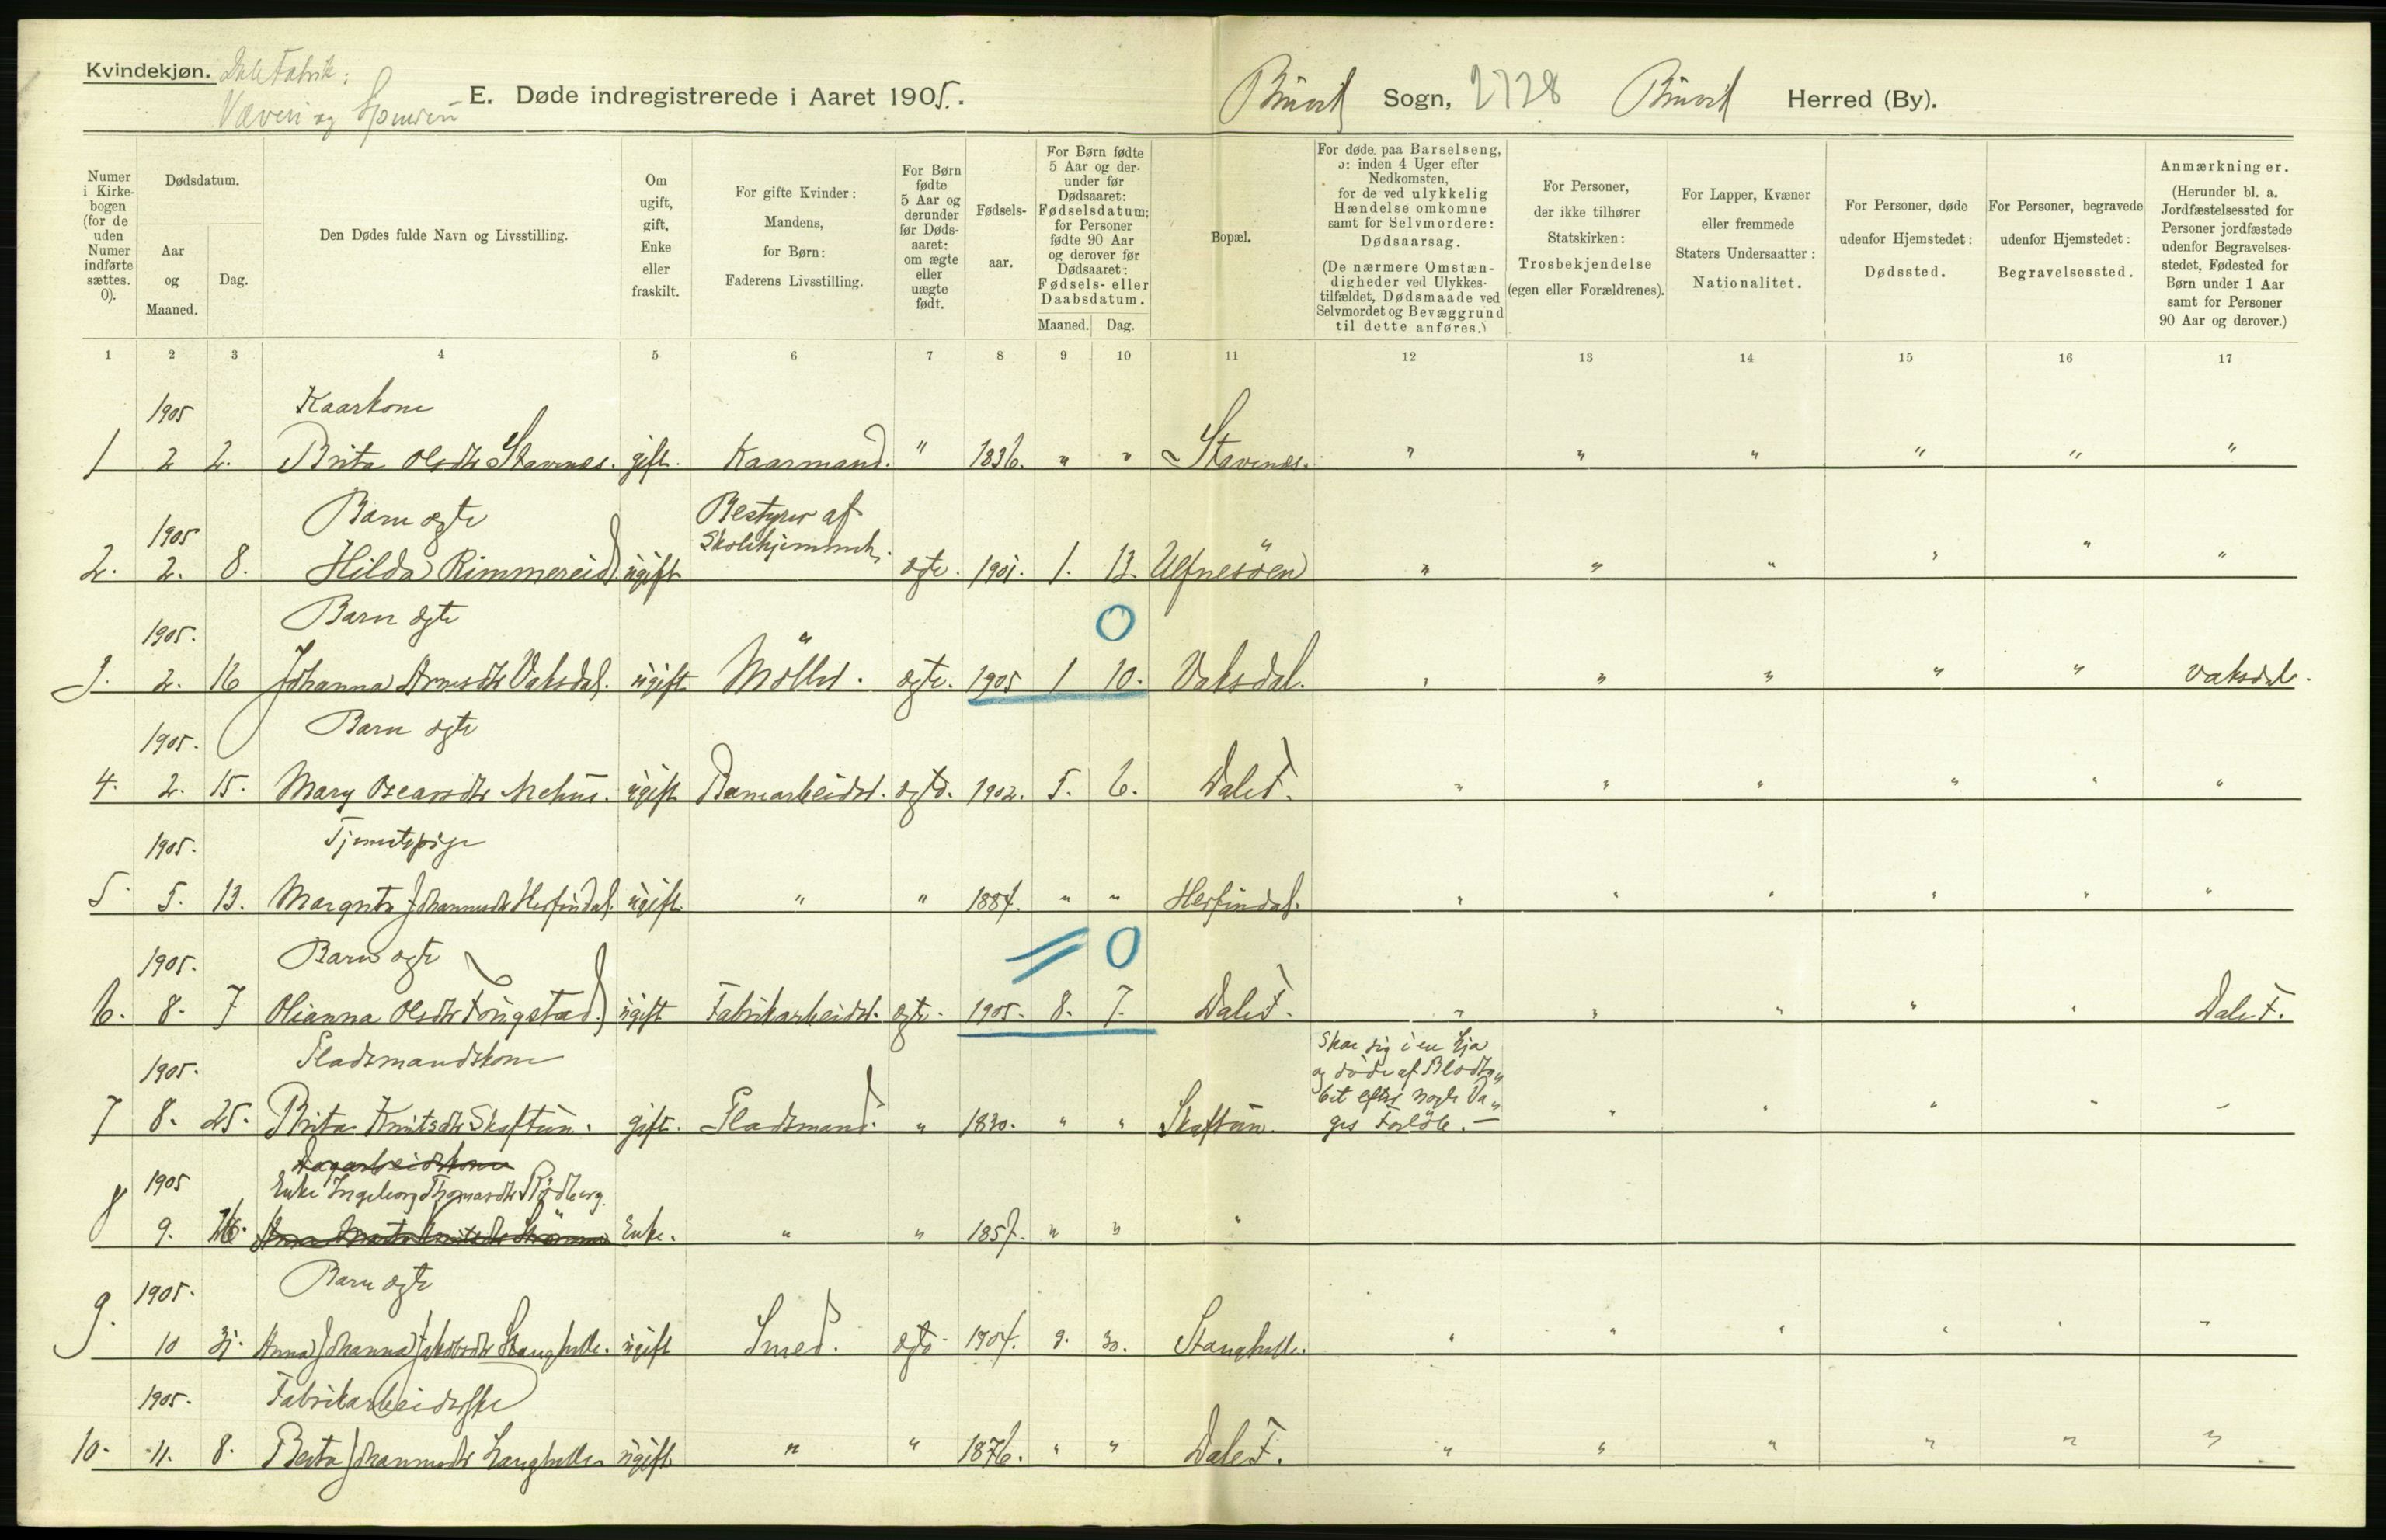 Kvindekjøn. Dale Fabrik:
Væveri og Spinderi
E. Døde indregistrerede i Aaret 1905.
Bruvik Sogn, 2728 Bruvik Herred (By).
Numer i Kirkebogen (for de uden Numer indførte sættes. 0).
Dødsdatum.
Aar og Maaned.
Dag.
Den Dødes fulde Navn og Livsstilling.
Om ugift, gift, Enke eller fraskilt.
For gifte Kvinder: Mandens, for Børn: Faderens Livsstilling.
For Børn fødte 5 Aar og derunder før Dødsaaret: om ægte eller uægte født.
Fødselsaar.
For Børn fødte 5 Aar og derunder før Dødsaaret: Fødselsdatum; for Personer fødte 90 Aar og derover før Dødsaaret: Fødsels- eller Daabsdatum.
Maaned. Dag.
Bopæl.
For døde paa Barselseng, ɔ: inden 4 Uger efter Nedkomsten, for de ved ulykkelig Hændelse omkomne samt for Selvmordere: Dødsaarsag.
(De nærmere Omstændigheder ved Ulykkestilfældet, Dødsmaade ved Selvmordet og Bevæggrund til dette anføres.)
For Personer, der ikke tilhører Statskirken: Trosbekjendelse (egen eller Forældrenes).
For Lapper, Kvæner eller fremmede Staters Undersaatter: Nationalitet.
For Personer, døde udenfor Hjemstedet: Dødssted.
For Personer, begravede udenfor Hjemstedet: Begravelsessted.
Anmærkninger.
(Herunder bl. a. Jordfæstelsessted for Personer jordfæstede udenfor Begravelsesstedet, Fødested for Børn under 1 Aar samt for Personer 90 Aar og derover.)
1 2 3 4 5 6 7 8 9 10 11 12 13 14 15 16 17
1905 Kaarkone
1 2 2. Brita Olsdtr Stavenes. gift. Kaarmand. " 1836. " " Stavenes. " " " " " "
1905 Barn ægte Bestyrer af
Skolehjemmet.
2. 2. 8. Hilda Rimmereid ugift ægte. 1901. 1. 13. Ulfnesöen " " " " " "
1905. Barn ægte 0
3. 2. 16 Johanna Arnesdtr Vaksdal. ugift Möller. ægte. 1905 1 10. Vaksdal. " " " " " Vaksdal.
1905. Barn ægte
4. 2. 15. Mary Oscarsdtr Nehus. ugift ægte. 1902. 5. 6. Dale F. " " " " " "
1905. Tjenestepige
5 5. 13. Margrete Johannesdtr Herfindal. ugift " " 1884. " " Herfindal. " " " " " "
1905. Barn ægte 0
6. 8. 7 Olianna Olsdtr Fougstad. ugift Fabrikarbeider. ægte. 1905. 8. 7. Dale F. " " " " " Dale F.
1905. Pladsmandskone Skar sig i en Lja
og döde af Blodta"
bet efter nogle Da"
7 8. 25. Brita Knutsdtr Skaftun. gift. Pladsmand. " 1830. " " Skaftun. ges Forlöb. - " " " " "
Dagarbeiderkone
1905 Enke Ingeborg Thomasdtr Rödberg.
8 9. 16. Enke. " " 1857. " " "
1905. Barn ægte
9. 10 31. Anna Johanna Jakobsdtr Stanghelle. ugift Smed. ægte 1904. 9. 30. Stanghelle. " " " " " "
1905. Fabrikarbeiderske
10. 11. 8. Berta Johannesdtr Langhelle ugift " " 1876. " " Dale F. " " " " " "